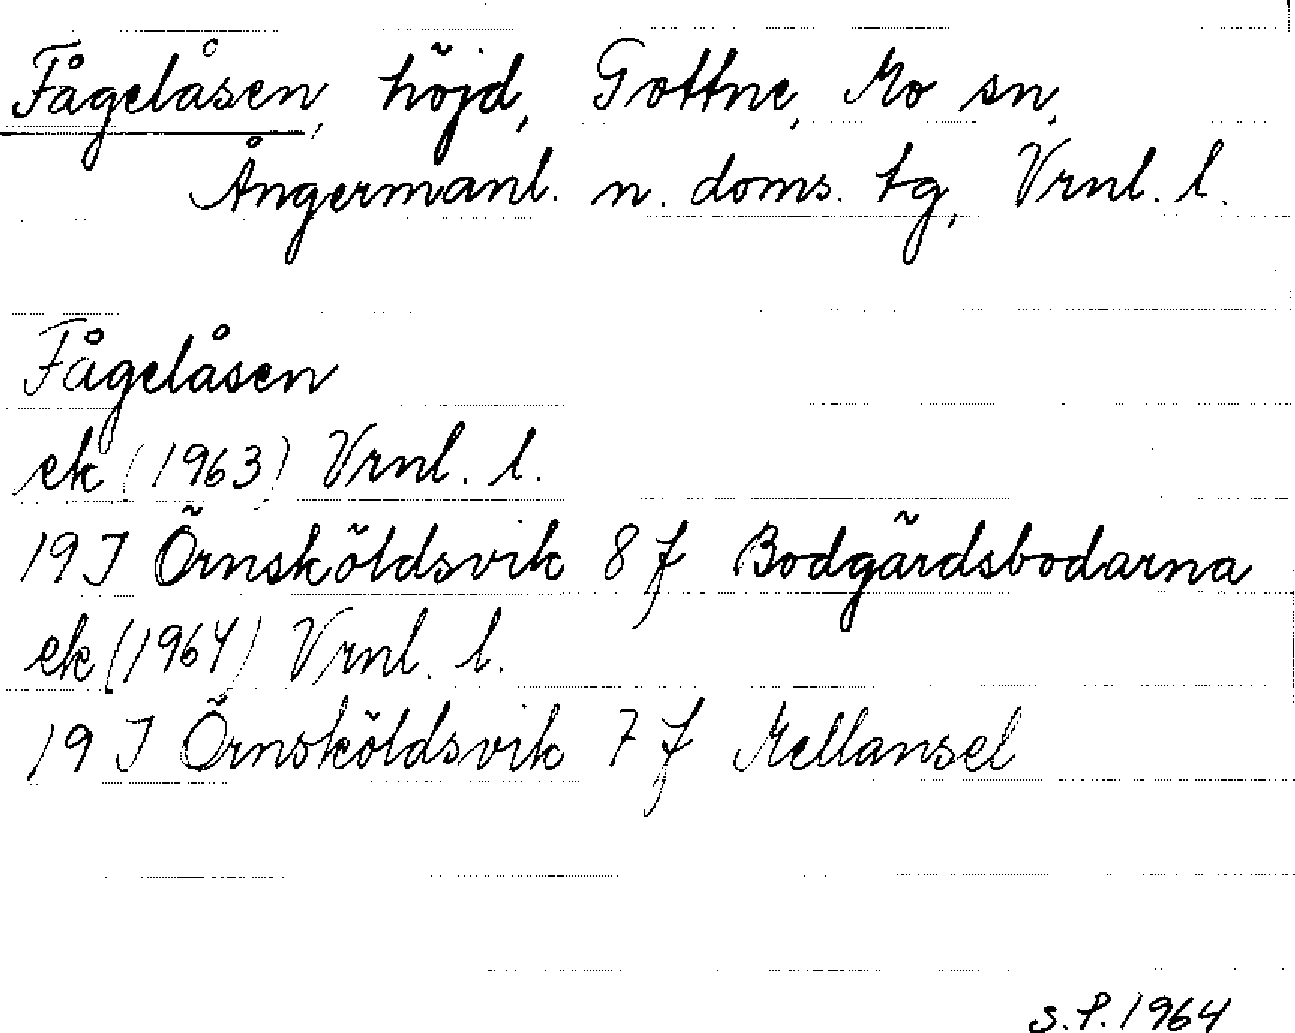 Fågelåsen, höjd, Gottne, Mo sn,
Ångermanl. n. doms. tg, Vrnl. l.
Fågelåsen
ek (1963) Vrnl. l.
19 I Örnsköldsvik 8 f Bodgärdsbodarna
ek (1964) Vrnl. l.
19 I Örnsköldsvik 7 f Mellansel
S.P. 1964